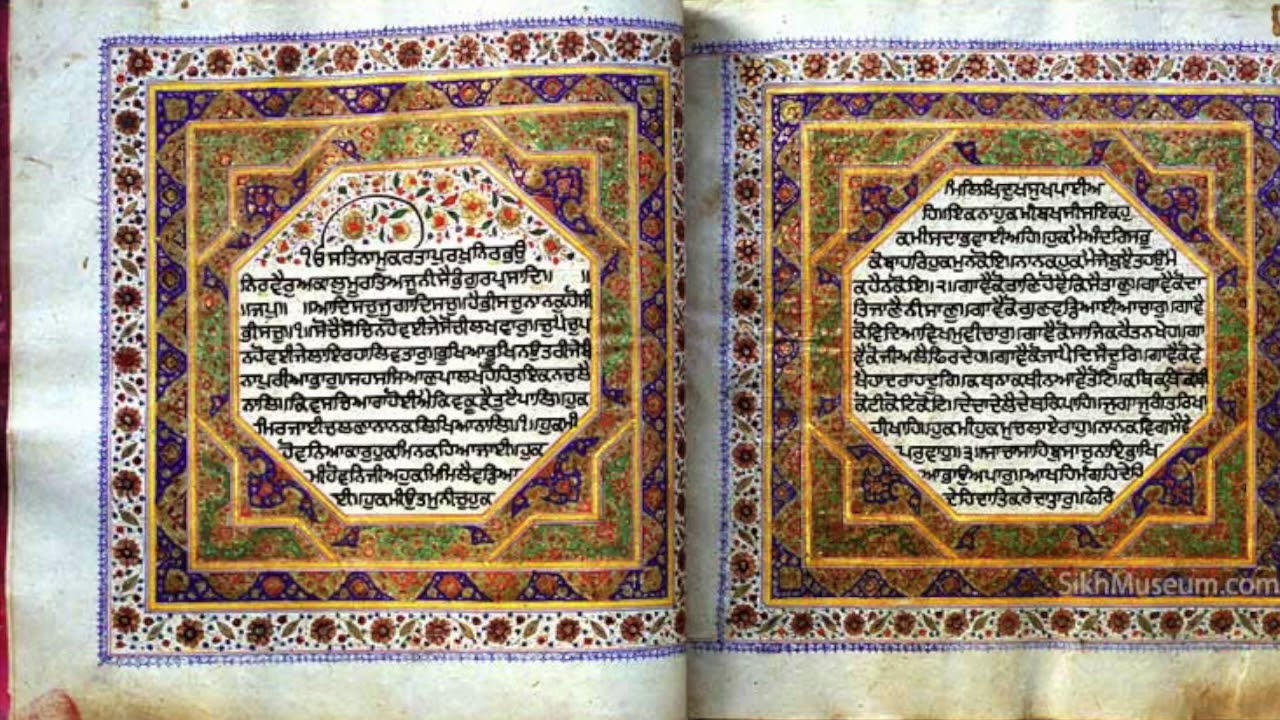 ੴਸਤਿਨਾਮੁਕਰਤਾਪੁਰਖੁਨਿਰਭਉ
ਨਿਰਵੈਰੁਅਕਾਲਮੂਰਤਿਅਜੂਨੀਸੈਭੰਗੁਰਪ੍ਰਸਾਦਿ॥ ॥
॥ਜਪੁ॥ ॥ਆਦਿਸਚੁਜੁਗਾਦਿਸਚੁ॥ਹੈਭੀਸਚੁਨਾਨਕਹੋਸੀ
ਭੀਸਚੁ॥੧॥ਸੋਚੈਸੋਚਿਨਹੋਵਈਜੇਸੋਚੀਲਖਵਾਰ॥ਚੁਪੈਚੁਪ
ਨਹੋਵਈਜੇਲਾਇਰਹਾਲਿਵਤਾਰ॥ਭੁਖਿਆਭੁਖਨਉਤਰੀਜੇਬੰ
ਨਾਪੁਰੀਆਭਾਰ॥ਸਹਸਸਿਆਣਪਾਲਖਹੋਹਿਤਇਕਨਚਲੈ
ਨਾਲਿ॥ਕਿਵਸਚਿਆਰਾਹੋਈਐਕਿਵਕੂੜੈਤੁਟੈਪਾਲਿ॥ਹੁਕ
ਮਿਰਜਾਈਚਲਣਾਨਾਨਕਲਿਖਿਆਨਾਲਿ॥੧॥ਹੁਕਮੀ
ਹੋਵਨਿਆਕਾਰਹੁਕਮਿਨਕਹਿਆਜਾਈ॥ਹੁਕ
ਮੀਹੋਵਨਿਜੀਅਹੁਕਮਿਮਿਲੈਵਡਿਆ
ਈ॥ਹੁਕਮੀਉਤਮੁਨੀਚੁਹੁਕ
ਮਿਲਿਖਿਦੁਖਸੁਖਪਾਈਅ
ਹਿ॥ਇਕਨਾਹੁਕਮੀਬਖਸੀਸਇਕਿਹੁ
ਕਮੀਸਦਾਭਵਾਈਅਹਿ॥ਹੁਕਮੈਅੰਦਰਿਸਭੁ
ਕੋਬਾਹਰਿਹੁਕਮਨਕੋਇ॥ਨਾਨਕਹੁਕਮੈਜੇਬੁਝੈਤਹਉਮੈ
ਕਹੈਨਕੋਇ॥੨॥ਗਾਵੈਕੋਤਾਣੁਹੋਵੈਕਿਸੈਤਾਣੁ॥ਗਾਵੈਕੋਦਾ
ਤਿਜਾਣੈਨੀਸਾਣੁ॥ਗਾਵੈਕੋਗੁਣਵਡਿਆਈਆਚਾਰ॥ਗਾਵੈ
ਕੋਵਿਦਿਆਵਿਖਮੁਵੀਚਾਰੁ॥ਗਾਵੈਕੋਸਾਜਿਕਰੇਤਨੁਖੇਹ॥ਗਾ
ਵੈਕੋਜੀਅਲੈਫਿਰਿਦੇਹ॥ਗਾਵੈਕੋਜਾਪੈਦਿਸੈਦੂਰਿ॥ਗਾਵੈਕੋਵੇ
ਖੈਹਾਦਰਾਹਦੂਰਿ॥ਕਥਨਾਕਥੀਨਆਵੈਤੋਟਿ॥ਕਥਿਕਥਿਕਥੀ
ਕੋਟੀਕੋਟਿਕੋਟਿ॥ਦੇਦਾਦੇਲੈਦੇਥਕਿਪਾਹਿ॥ਜੁਗਾਜੁਗੰਤਰਿਖਾ
ਹੀਖਾਹਿ॥ਹੁਕਮੀਹੁਕਮੁਚਲਾਏਰਾਹੁ॥ਨਾਨਕਵਿਗਸੈਵੇ
ਪਰਵਾਹੁ॥੩॥ਸਾਚਾਸਾਹਿਬੁਸਾਚੁਨਾਇਭਾਖਿ
ਆਭਾਉਅਪਾਰੁ॥ਆਖਹਿਮੰਗਹਿਦੇਹਿ
ਦੇਹਿਦਾਤਿਕਰੇਦਾਤਾਰੁ॥ਫੇਰਿ
SikhMuseum.com